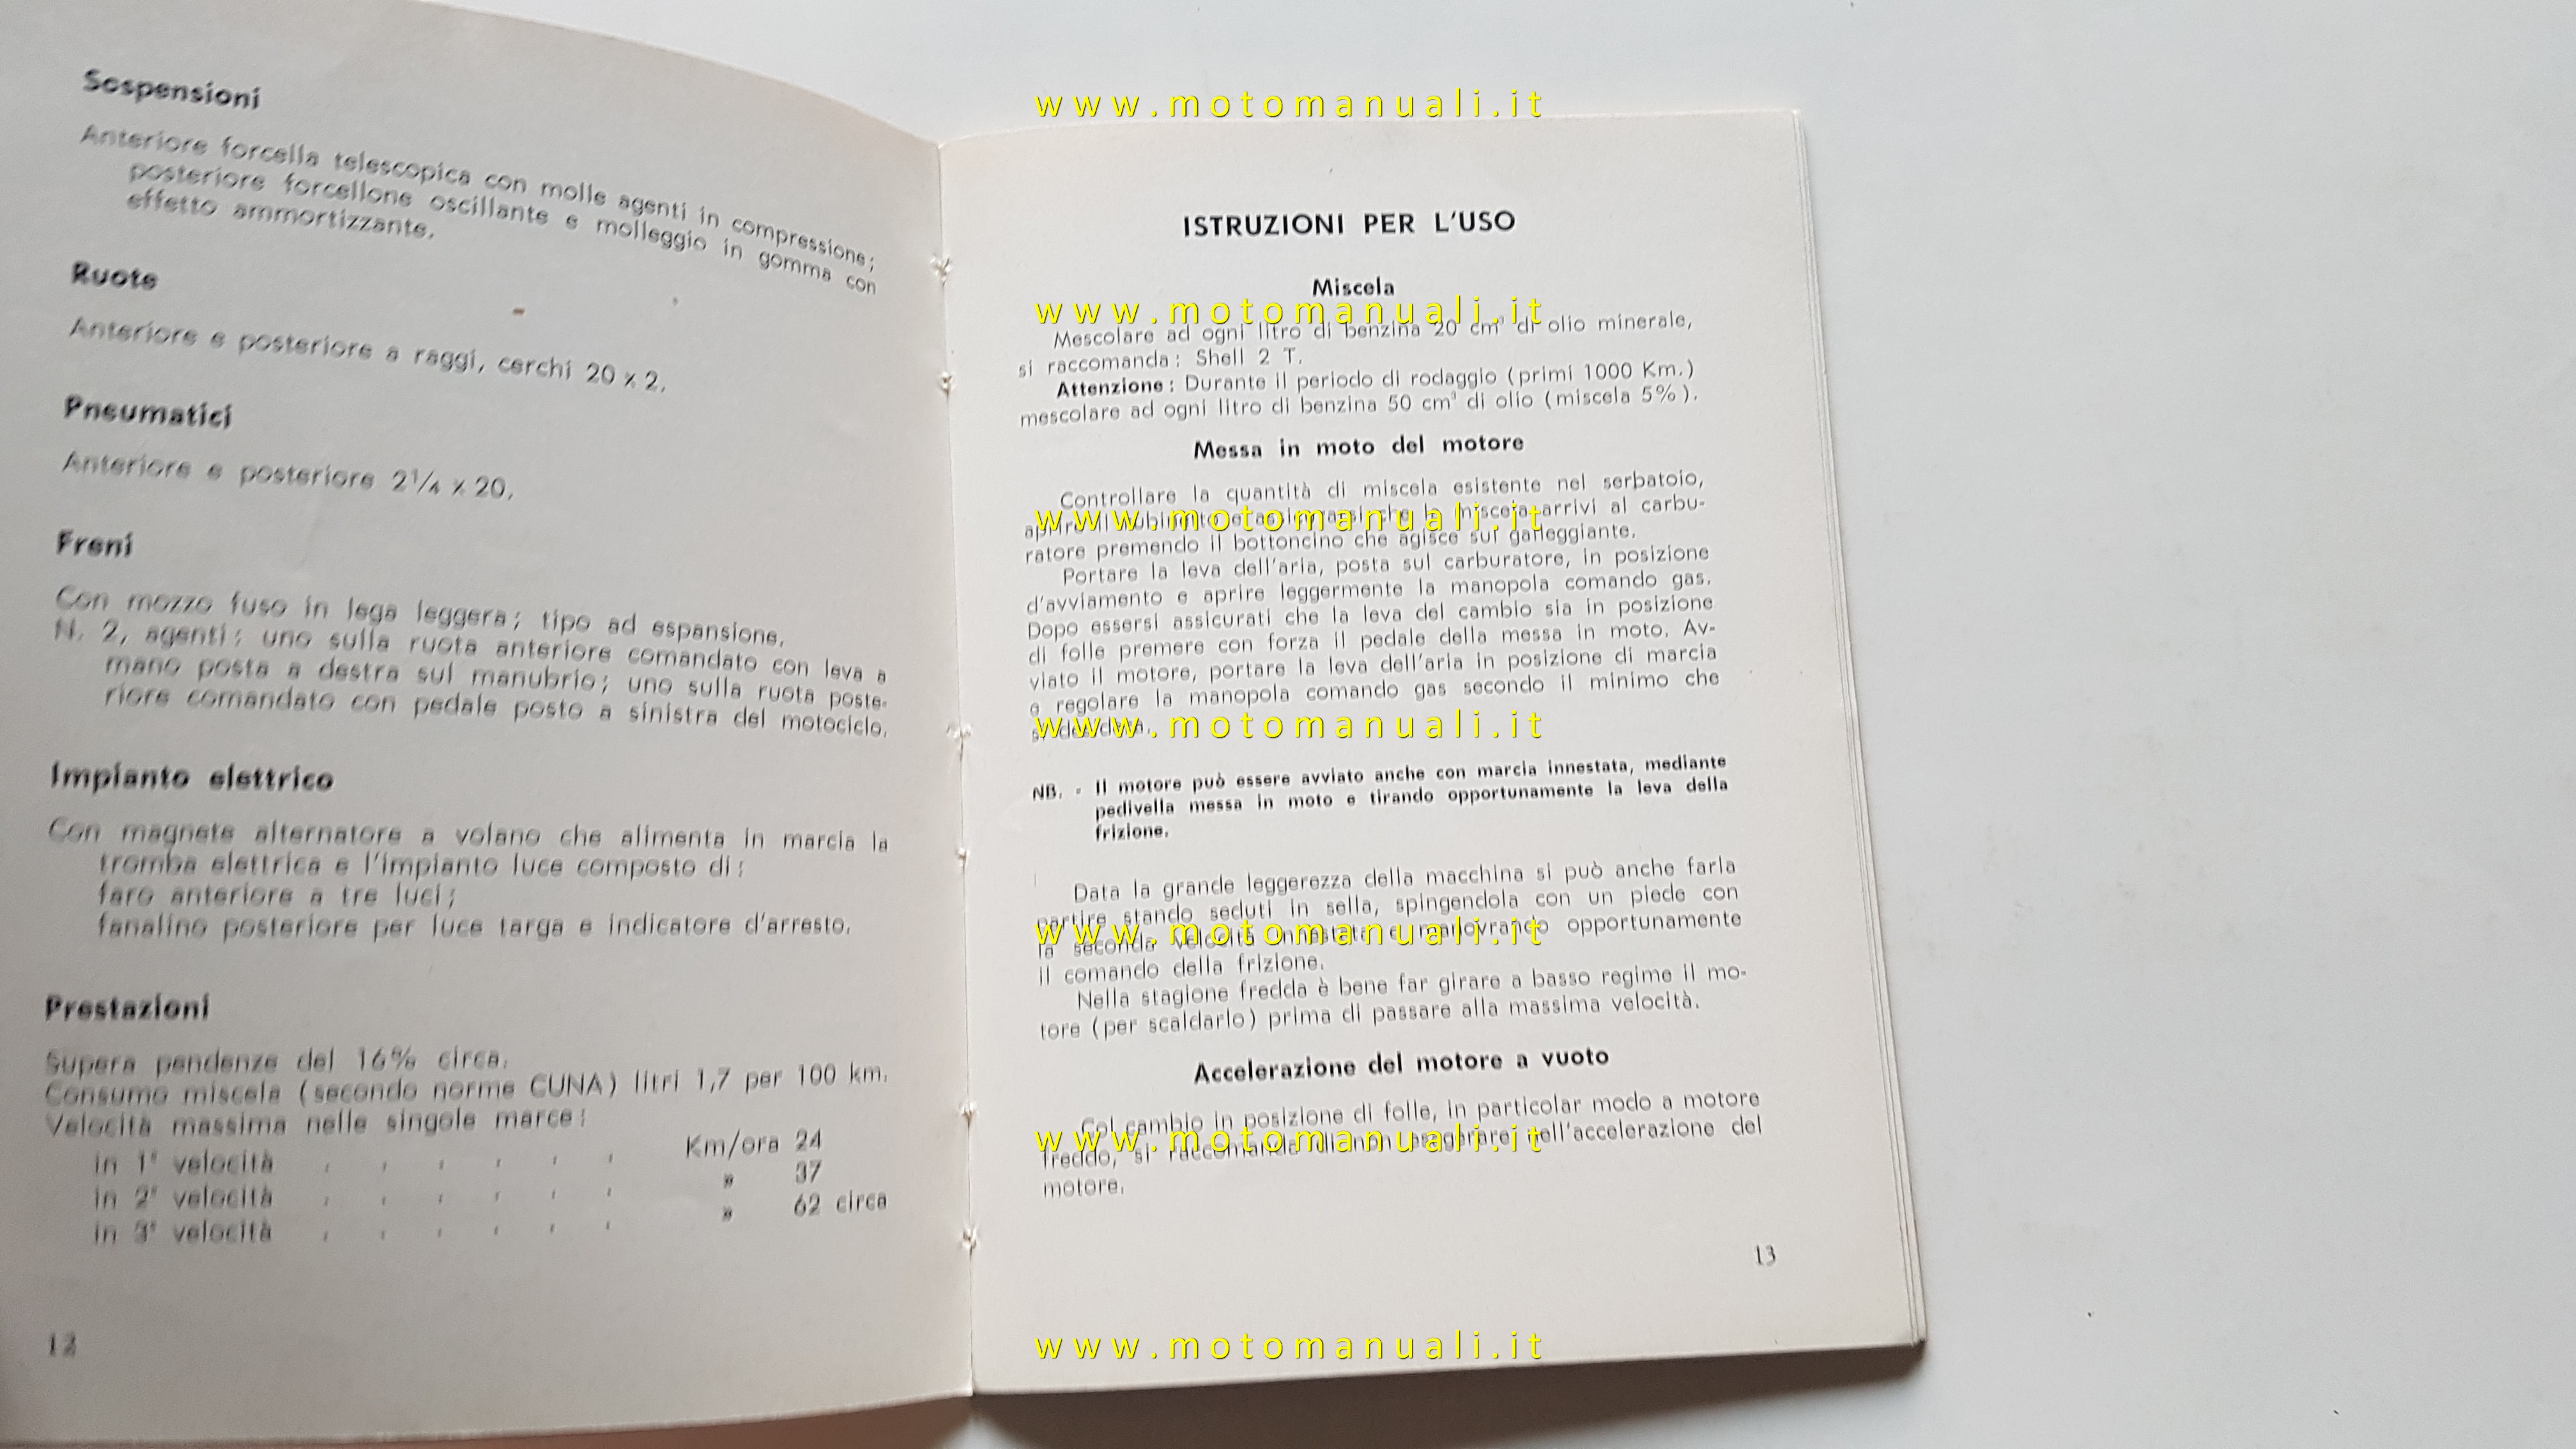 Sospensioni
Anteriore forcella telescopica con molle agenti in compressione;
posteriore forcellone oscillante e molleggio in gomma con
effetto ammortizzante.
Ruote
Anteriore e posteriore a raggi, cerchi 20 x 2.
Pneumatici
Anteriore e posteriore 2¹/₄ x 20.
Freni
Con mozzo fuso in lega leggera; tipo ad espansione.
N. 2, agenti: uno sulla ruota anteriore comandato con leva a
mano posta a destra sul manubrio; uno sulla ruota poste-
riore comandato con pedale posto a sinistra del motociclo.
Impianto elettrico
Con magnete alternatore a volano che alimenta in marcia la
tromba elettrica e l'impianto luce composto di:
faro anteriore a tre luci;
fanalino posteriore per luce targa e indicatore d'arresto.
Prestazioni
Supera pendenze del 16% circa.
Consumo miscela (secondo norme CUNA) litri 1,7 per 100 km.
Velocità massima nelle singole marce:
in 1ª velocità . . . . . . Km/ora 24
in 2ª velocità . . . . . . » 37
in 3ª velocità . . . . . . » 62 circa
12
www.motomanuali.it
ISTRUZIONI PER L'USO
Miscela
www.motomanuali.it
Mescolare ad ogni litro di benzina 20 cm³ di olio minerale,
si raccomanda: Shell 2 T.
Attenzione: Durante il periodo di rodaggio (primi 1000 Km.)
mescolare ad ogni litro di benzina 50 cm³ di olio (miscela 5%).
Messa in moto del motore
Controllare la quantità di miscela esistente nel serbatoio,
www.motomanuali.it
aprire il rubinetto e assicurarsi che la miscela arrivi al carbu-
ratore premendo il bottoncino che agisce sul galleggiante.
Portare la leva dell'aria, posta sul carburatore, in posizione
d'avviamento e aprire leggermente la manopola comando gas.
Dopo essersi assicurati che la leva del cambio sia in posizione
di folle premere con forza il pedale della messa in moto. Av-
viato il motore, portare la leva dell'aria in posizione di marcia
e regolare la manopola comando gas secondo il minimo che
si desidera.
www.motomanuali.it
NB. - Il motore può essere avviato anche con marcia innestata, mediante
pedivella messa in moto e tirando opportunamente la leva della
frizione.
Data la grande leggerezza della macchina si può anche farla
partire stando seduti in sella, spingendola con un piede con
www.motomanuali.it
la seconda velocità innestata e manovrando opportunamente
il comando della frizione.
Nella stagione fredda è bene far girare a basso regime il mo-
tore (per scaldarlo) prima di passare alla massima velocità.
Accelerazione del motore a vuoto
Col cambio in posizione di folle, in particolar modo a motore
www.motomanuali.it
freddo, si raccomanda di non esagerare nell'accelerazione del
motore.
13
www.motomanuali.it